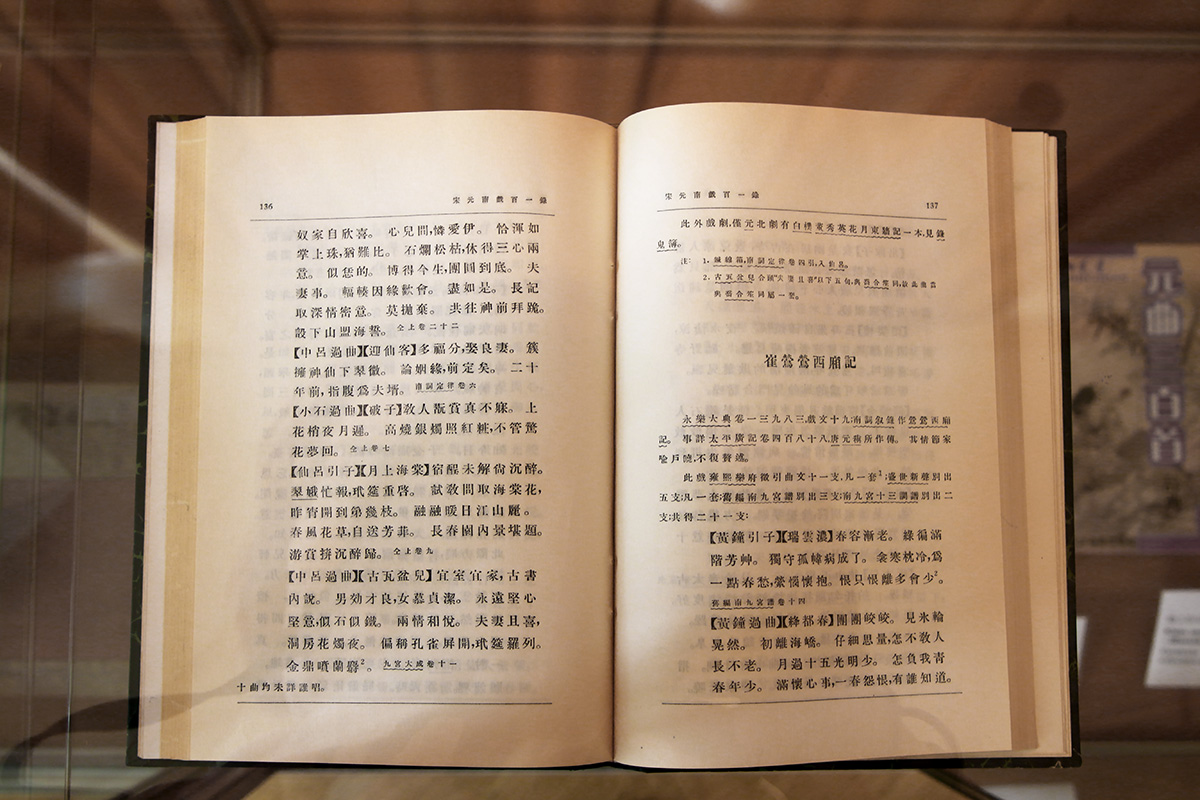 136
宋元南戲百一錄
奴家自欣喜。 心兒間，憐愛伊。 恰渾如
掌上珠，猶難比。 石爛松枯，休得三心兩
意。 似恁的。 博得今生，團圓到底。 夫
妻事。 輻輳因緣歡會。 盡如是。 長記
取深情密意。 莫拋棄。 共往神前拜跪。
設下山盟海誓。 仝上卷二十二
【中呂過曲】【迎仙客】多福分，娶良妻。 簇
擁神仙下翠微。 論姻緣，前定矣。 二十
年前，指腹爲夫壻。 南詞定律卷六
【小石過曲】【破子】敎人翫賞真不寐。 上
花梢夜月遲。 高燒銀燭照紅粧，不管驚
花夢回。 仝上卷七
【仙呂引子】【月上海棠】宿酲未解尙沉醉。
翠娥忙報，玳筵重啓。 試敎問取海棠花，
昨宵開到第幾枝。 融融暖日江山麗。
春風花草，自送芳菲。 長春園內景堪題。
游賞拚沉醉歸。 仝上卷九
【中呂過曲】【古瓦盆兒】宜室宜家，古書
內說。 男効才良，女慕貞潔。 永遠堅心
堅意，似石似鐵。 兩情和悅。 夫妻且喜，
洞房花燭夜。 偏稱孔雀屏開，玳筵羅列。
金鼎噴蘭麝2。 九宮大成卷十一
十曲均未詳誰唱。
宋元南戲百一錄
137
此外戲劇，僅元北劇有白樸董秀英花月東牆記一本，見錄
鬼簿。
注： 1. 鍼線箱，南詞定律卷四引，入仙呂。
2. 古瓦盆兒合頭“夫妻且喜”以下五句，與舊合笙同，故此曲當
與舊合笙同屬一套。
崔鶯鶯西廂記
永樂大典卷一三九八三，戲文十九；南詞敘錄作鶯鶯西廂
記。 事詳太平廣記卷四百八十八，唐元稹所作傳。 其情節家
喩戶曉，不復贅述。
此戲雍熙樂府徵引曲文十一支，凡一套1；盛世新聲別出
五支；凡一套；舊編南九宮譜別出三支；南九宮十三調譜別出二
支；共得二十一支：
【黃鐘引子】【瑞雲濃】春容漸老。 綠徧滿
階芳艸。 獨守孤幃病成了。 衾寒枕冷，爲
一點春愁，縈惱懷抱。 恨只恨離多會少2。
舊編南九宮譜卷十四
【黃鐘過曲】【絳都春】團團皎皎。 見氷輪
晃然。 初離海嶠。 仔細思量，怎不敎人
長不老。 月過十五光明少。 怎負我靑
春年少。 滿懷心事，一春怨恨，有誰知道。
元曲三百首